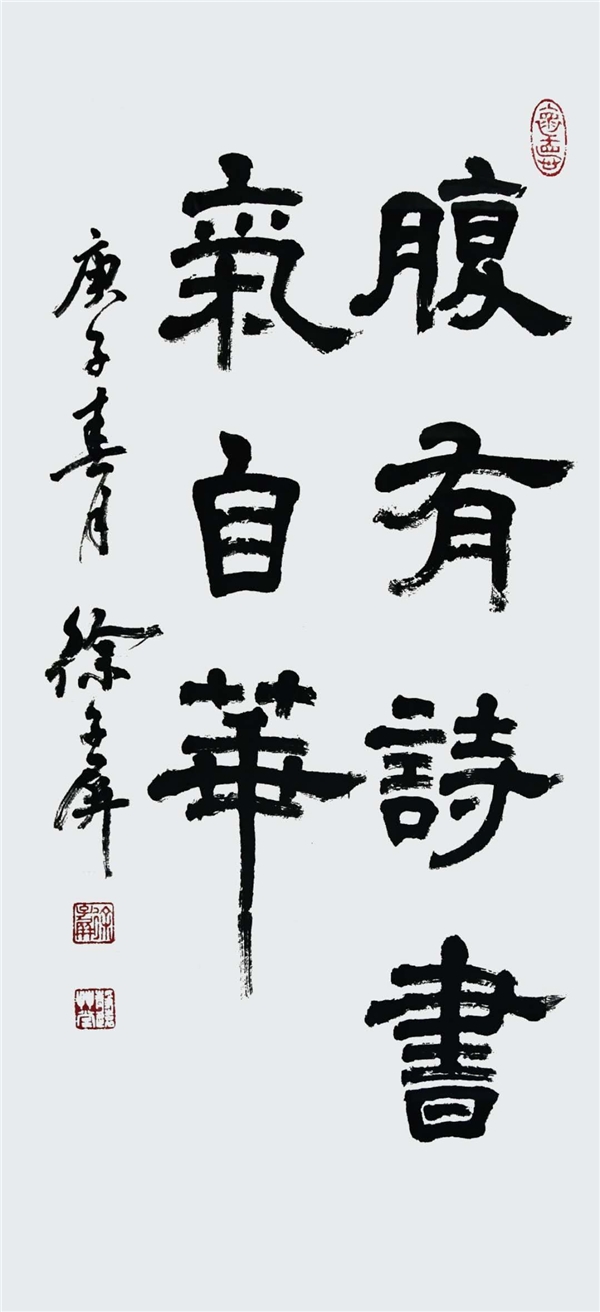 腹有詩書
氣自華
庚子春月
徐子屏